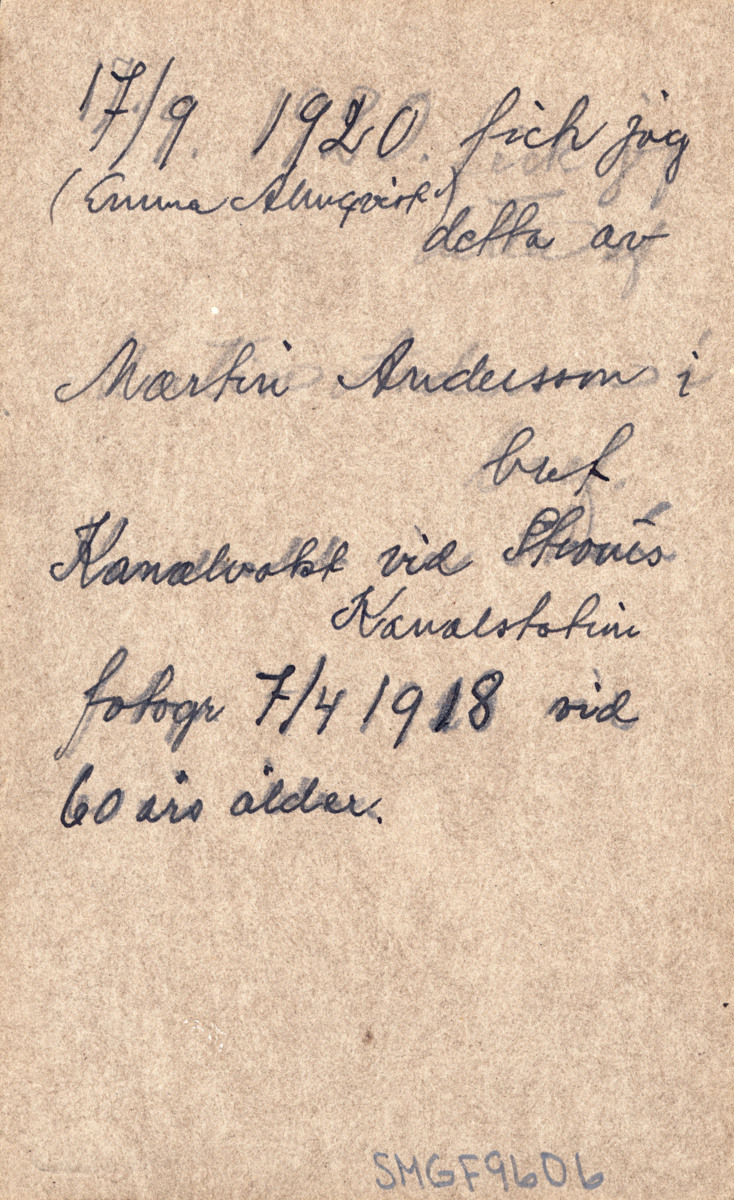 17/9. 1920. fick jag
(Emma Almqvist)
detta av
Martin Andersson i
bref
Kanalvakt vid
Kanalstation
fotogr 7/4 1918 vid
60 års ålder.
SMGF9606